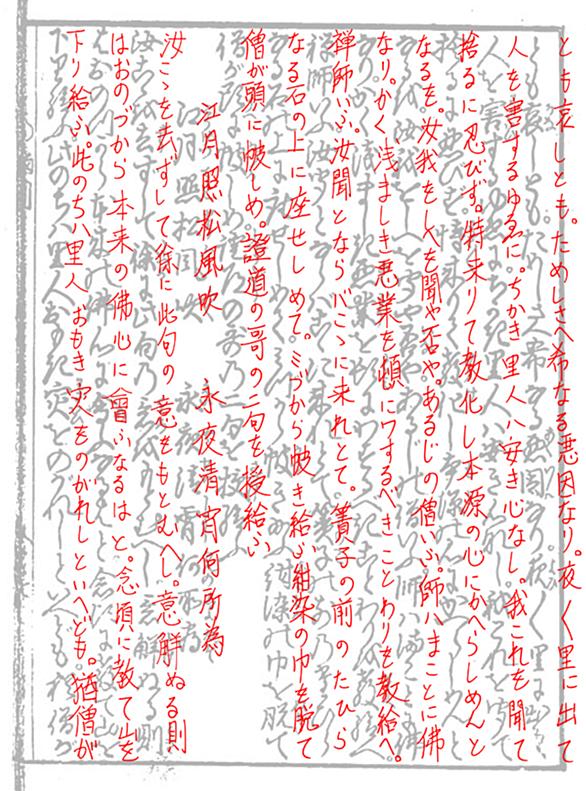 とも哀しとも。ためしさへ希なる悪因なり。夜〱里に出て
人を害するゆゑに。ちかき里人ハ安き心なし。我これを聞て
捨るに忍びず。特来りて教化し本源の心にかへらしめんと
なるを。汝我をしへを聞や否や。あるじの僧いふ。師ハまことに佛
なり。かく浅ましき悪業を頓にワするべきことわりを教給へ。
禅師いふ。汝聞とならバこゝに来れとて。簀子の前のたひら
なる石の上に座せしめて。ミづから帔き給ふ紺染の巾を脱て
僧が頭に帔しめ。證道の哥の二句を授給ふ
江月照松風吹　永夜清宵何所為
汝こゝを去ずして徐に此句の意をもとむへし。意解ぬる則
はおのづから本来の佛心に會ふなるはと。念頃に教て山を
下り給ふ。此のちハ里人おもき災をのがれしといへども。猶僧が